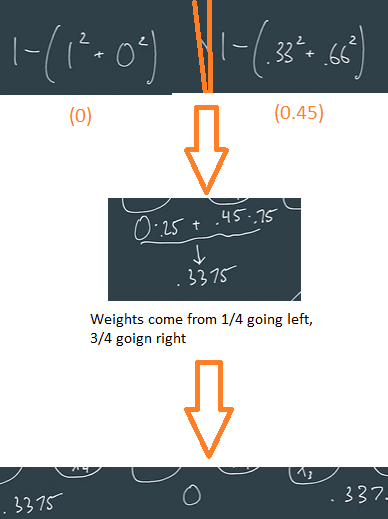 1-(1²+0²) 1-(.33²+.66²)
(0) (0.45)
0·.25 + .45·.75
.3375
Weights come from 1/4 going left,
3/4 goign right
.3375 0 .337